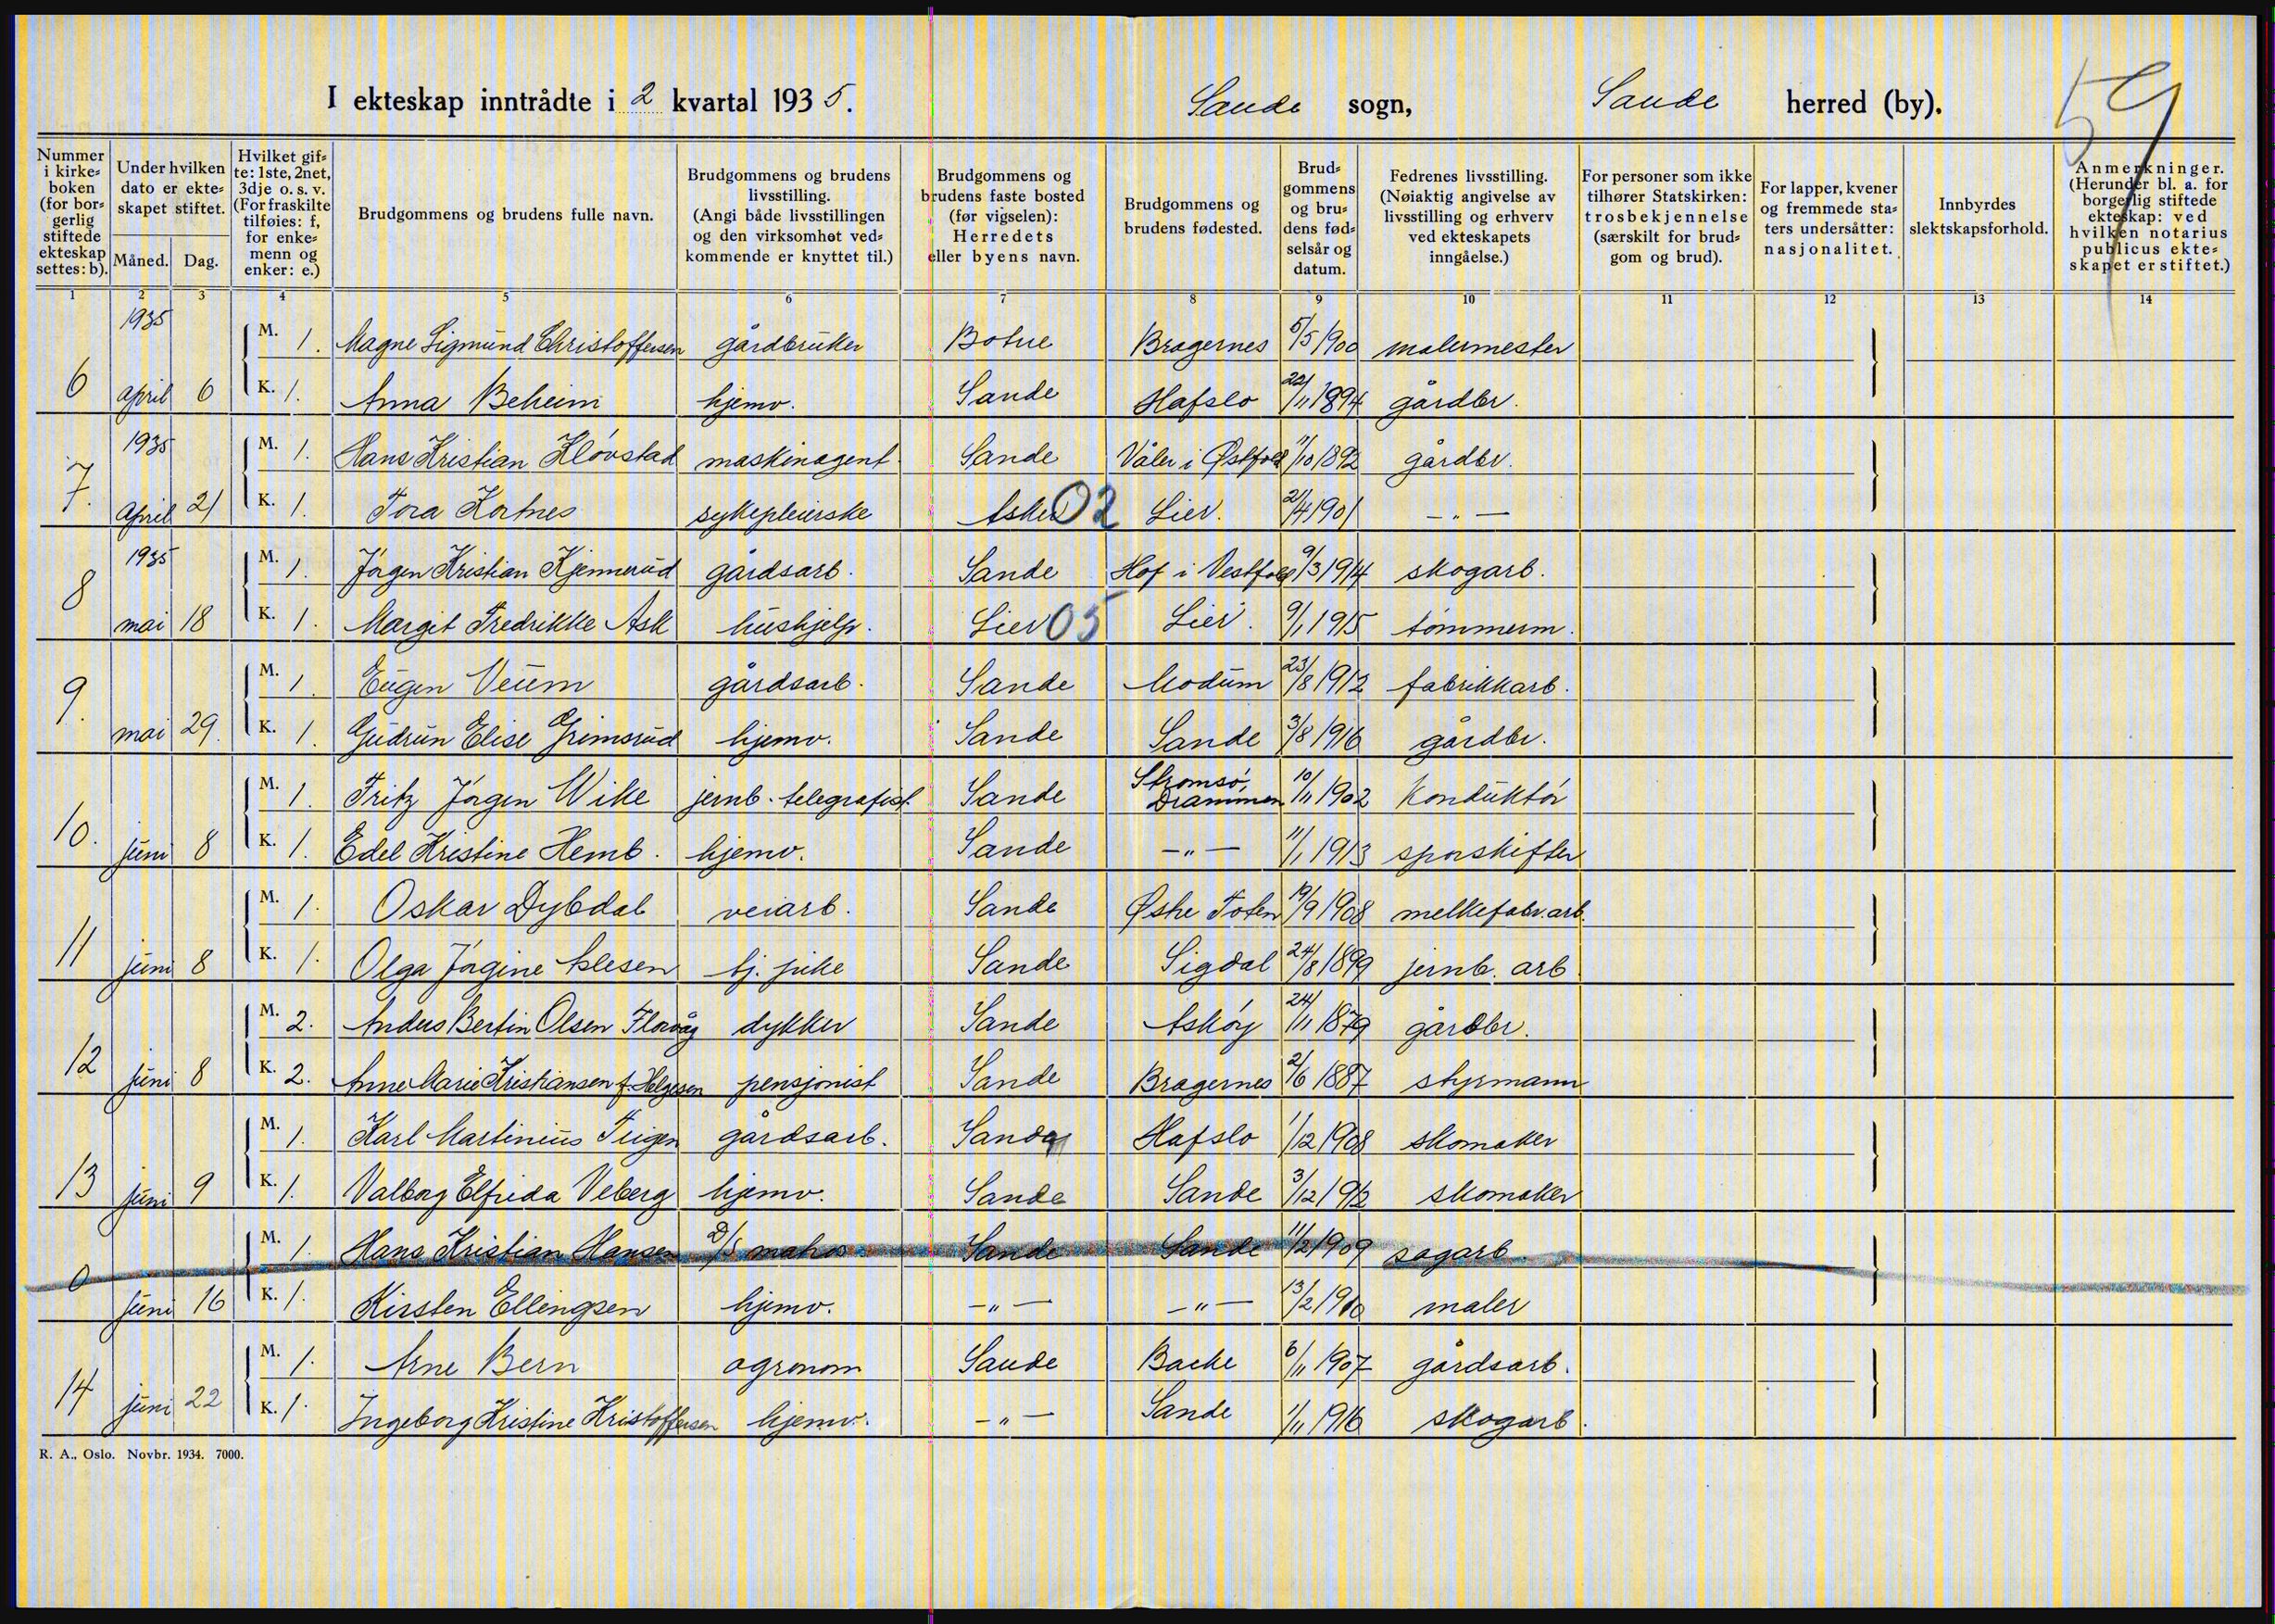 I ekteskap inntrådte i 2 kvartal 1935. Sande sogn, Sande herred (by). 59
Nummer i kirkeboken (for borgerlig stiftede ekteskap settes: b). Under hvilken dato er ekteskapet stiftet. Måned. Dag. Hvilket gifte: 1ste, 2net, 3dje o. s. v. (For fraskilte tilføies: f, for enkemenn og enker: e.) Brudgommens og brudens fulle navn. Brudgommens og brudens livsstilling. (Angi både livsstillingen og den virksomhet vedkommende er knyttet til.) Brudgommens og brudens faste bosted (før vigselen): Herredets eller byens navn. Brudgommens og brudens fødested. Brudgommens og brudens fødselsår og datum. Fedrenes livsstilling. (Nøiaktig angivelse av livsstilling og erhverv ved ekteskapets inngåelse.) For personer som ikke tilhører Statskirken: trosbekjennelse (særskilt for brudgom og brud). For lapper, kvener og fremmede staters undersåtter: nasjonalitet. Innbyrdes slektskapsforhold. Anmerkninger. (Herunder bl. a. for borgerlig stiftede ekteskap: ved hvilken notarius publicus ekteskapet er stiftet.)
1 2 3 4 5 6 7 8 9 10 11 12 13 14
1935 M. 1. Magne Sigmund Christoffersen gårdbruker Botne Bragernes 5/5 1900 malermester
6 april 6 K. 1. Anna Beheim hjemv. Sande Hafslo 22/11 1894 gårdbr.
1935 M. 1. Hans Kristian Kløvstad maskinagent Sande Våler i Østfold 11/10 1892 gårdbr.
7. April 21 K. 1. Tora Kortnes sykepleierske Asker 02 Lier. 2/4 1901 -"-
1935 M. 1. Jørgen Kristian Kjennerud gårdsarb. Sande Hof i Vestfold 9/3 1914 skogarb.
8 mai 18 K. 1. Margit Fredrikke Ask hushjelp. Lier 05 Lier. 9/1 1915 tømmerm.
M. 1. Eugen Veum gårdsarb. Sande Modum 23/8 1912 fabrikkarb.
9. mai 29. K. 1. Gudrun Elise Grimsrud hjemv. Sande Sande 3/8 1916 gårdbr.
M. 1. Fritz Jørgen Wike jernb. telegrafist Sande Strømsø, Drammen 10/11 1902 Konduktør
10. juni 8 K. 1. Edel Kristine Hemb. hjemv. Sande -"- 11/1 1913 sporskifter
M. 1. Oskar Dybdal veiarb. Sande Østre Toten 19/9 1908 melkefabr.arb.
11 juni 8 K. 1. Olga Jørgine Aslesen hj. pike Sande Sigdal 24/8 1899 jernb. arb
M. 2. Anders Bertin Olsen Florvåg dykker Sande Askøy 24/11 1879 gårdbr.
12 juni 8 K. 2. Anne Marie Kristiansen f. Helgesen pensjonist Sande Bragernes 2/6 1887 styrmann
M. 1. Karl Martinius Teigen gårdsarb. Sande Hafslo 1/12 1908 skomaker
13 juni 9 K. 1. Valborg Elfrida Veberg hjemv. Sande Sande 3/12 1912 skomaker
M. 1. Hans Kristian Hansen D/S matros Sande Sande 11/2 1909 sagarb.
0 juni 16 K. 1. Kirsten Ellingsen hjemv. -"- -"- 13/2 1910 maler
M. 1. Arne Bern agronom Sande Backe 6/11 1907 gårdsarb.
14 juni 22 K. 1. Ingeborg Kristine Kristoffersen hjemv. -"- Sande 1/11 1916 skogarb.
R. A., Oslo. Novbr. 1934. 7000.